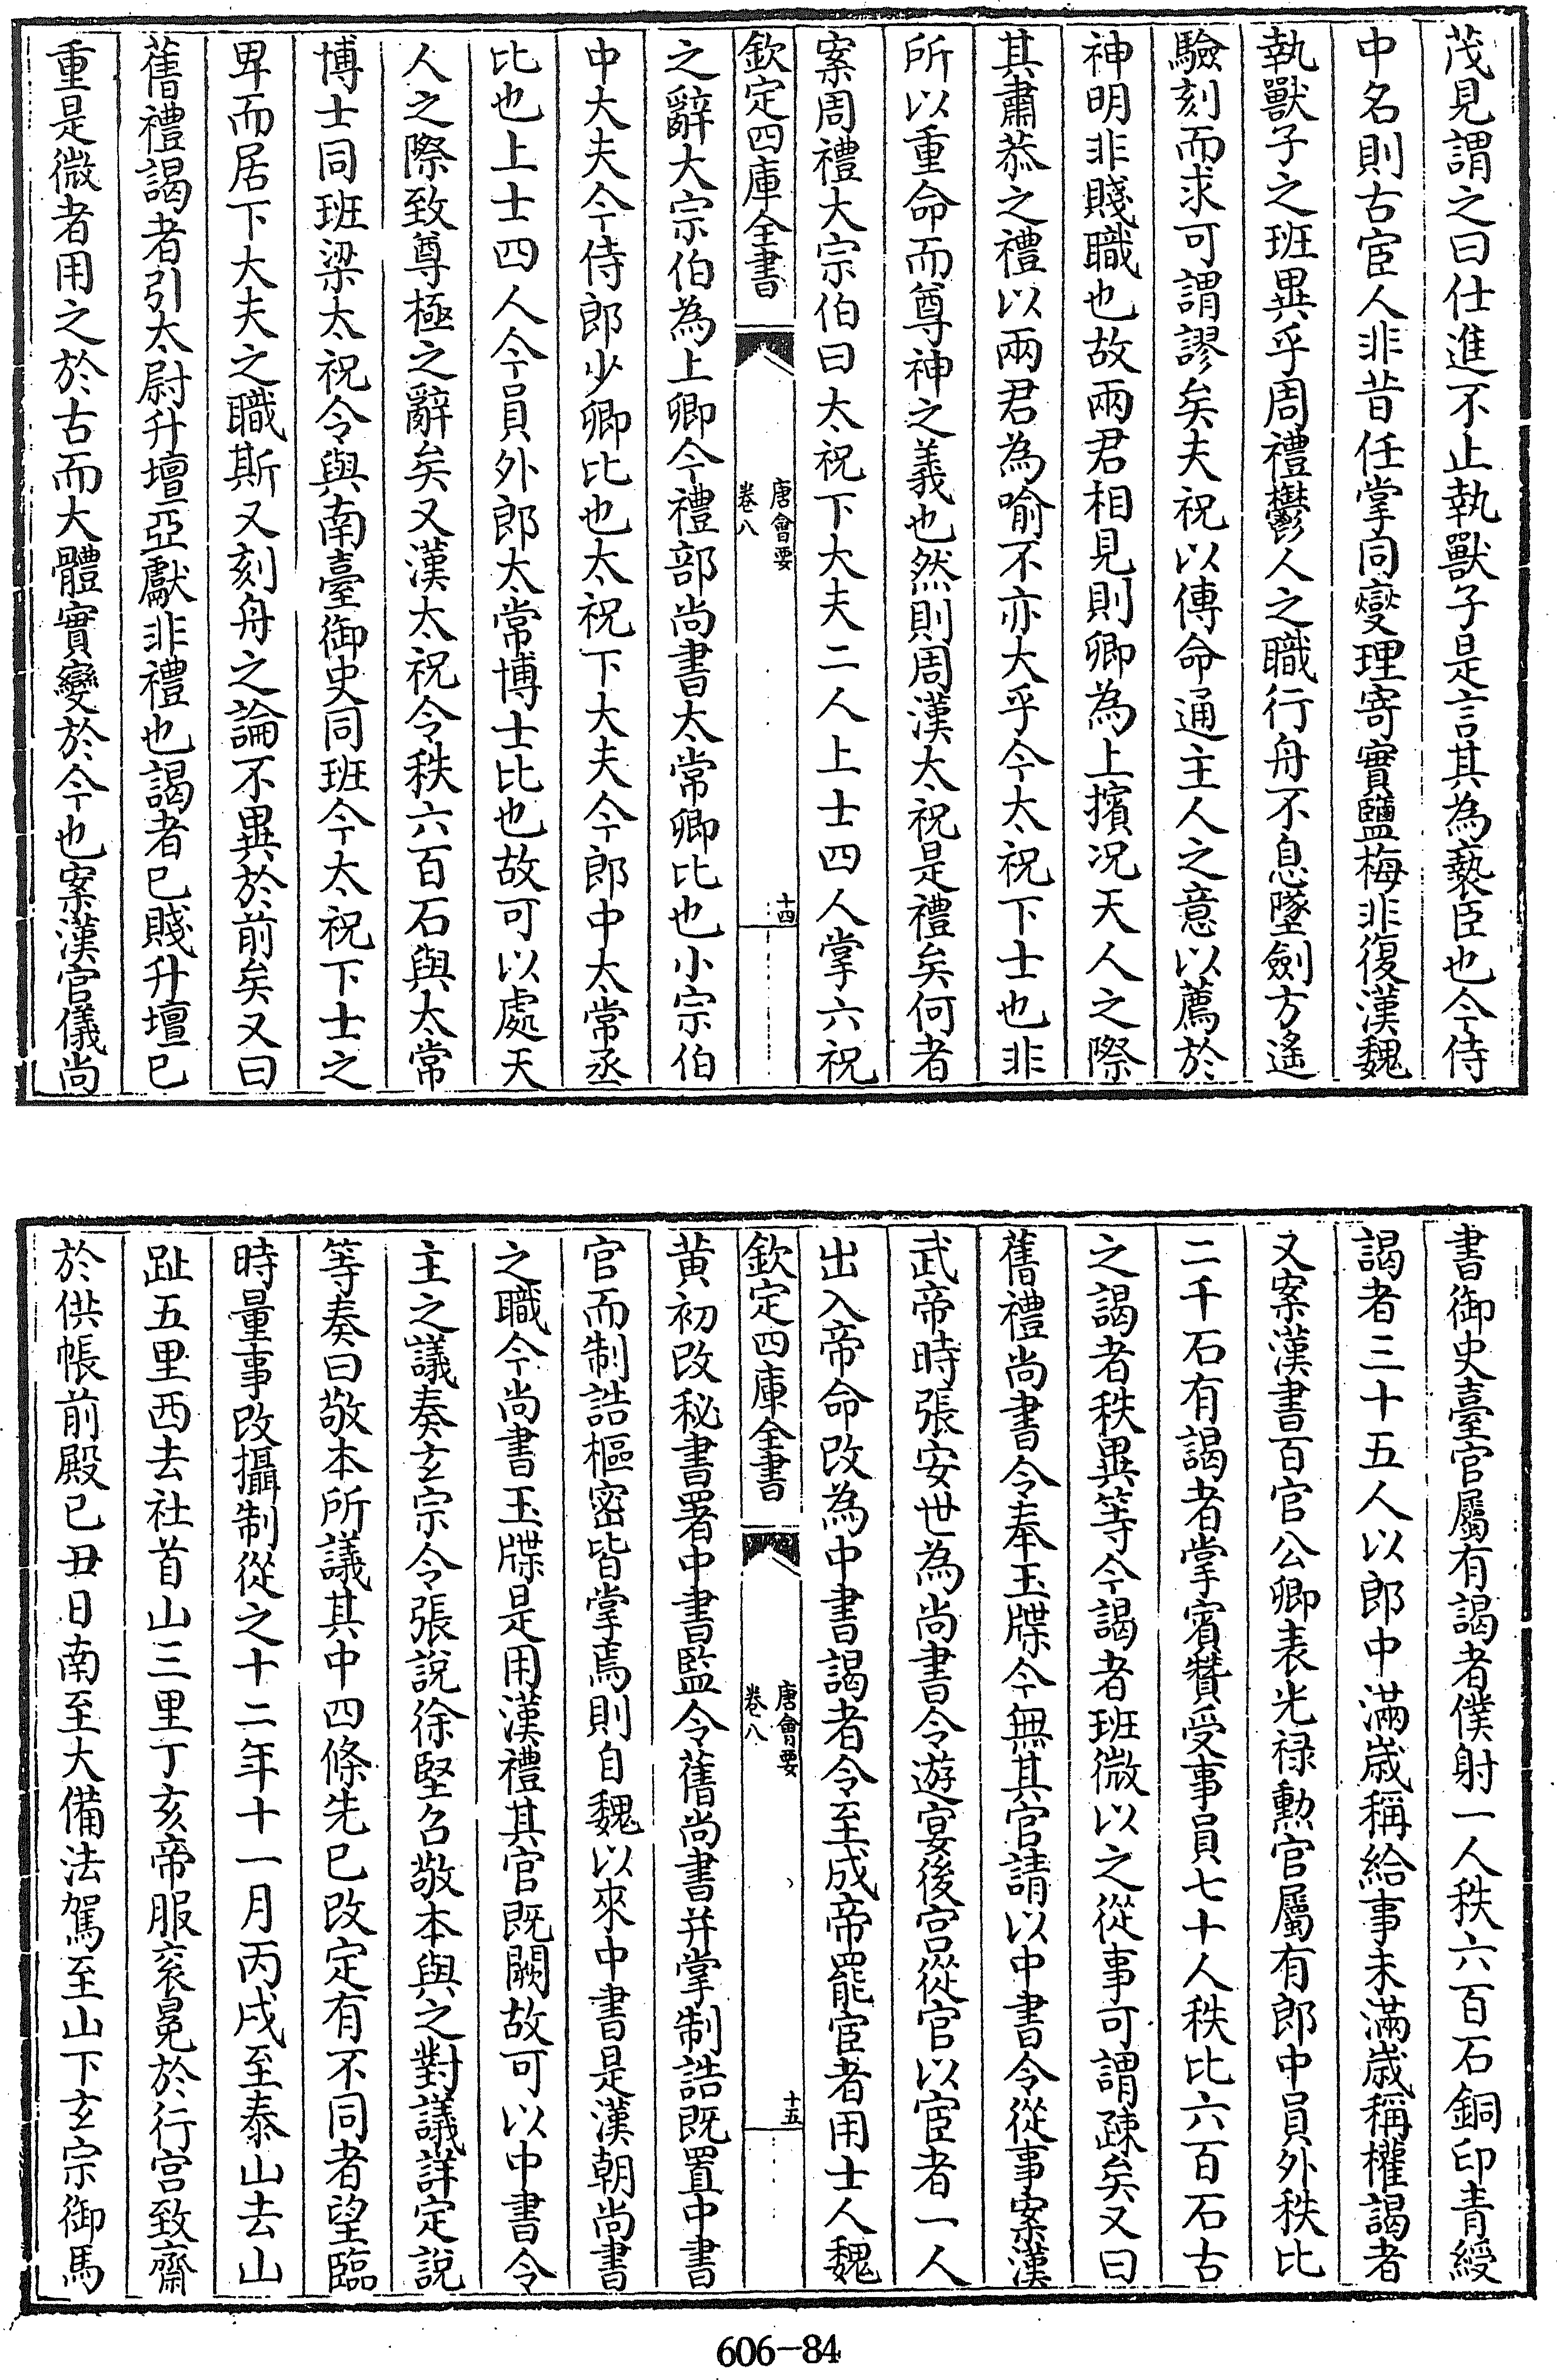 茂見謂之曰仕進不止執獸子是言其為褻臣也今侍
中名則古官人非昔任掌同燮理寄實鹽梅非復漢魏
執獸子之班異乎周禮鬱人之職行舟不息墜劍方遙
驗刻而求可謂謬矣夫祝以傳命通主人之意以薦於
神明非賤職也故兩君相見則卿為上擯况天人之際
其肅恭之禮以兩君為喻不亦大乎今太祝下士也非
所以重命而尊神之義也然則周漢太祝是禮矣何者
案周禮大宗伯曰太祝下大夫二人上士四人掌六祝
欽定四庫全書
唐會要
卷八
十四
之辭大宗伯為上卿今禮部尚書太常卿比也小宗伯
中大夫今侍郎少卿比也太祝下大夫今郎中太常丞
比也上士四人今員外郎太常博士比也故可以處天
人之際致尊極之辭矣又漢太祝令秩六百石與太常
博士同班梁太祝令與南臺御史同班今太祝下士之
卑而居下大夫之職斯又刻舟之論不異於前矣又曰
舊禮謁者引太尉升壇亞獻非禮也謁者已賤升壇已
重是微者用之於古而大體實變於今也案漢官儀尚
書御史臺官屬有謁者僕射一人秩六百石銅印青綬
謁者三十五人以郎中滿歲稱給事未滿歲稱權謁者
又案漢書百官公卿表光禄勲官屬有郎中員外秩比
二千石有謁者掌賓贊受事員七十人秩比六百石古
之謁者秩異等今謁者班微以之從事可謂疎矣又曰
舊禮尚書令奉玉牒今無其官請以中書令從事案漢
武帝時張安世為尚書令遊宴後宮從官以宦者一人
出入帝命改為中書謁者令至成帝罷宦者用士人魏
欽定四庫全書
唐會要
卷八
十五
黄初改秘書署中書監令舊尚書并掌制誥既置中書
官而制誥樞密皆掌焉則自魏以來中書是漢朝尚書
之職今尚書玉牒是用漢禮其官既闕故可以中書令
主之議奏玄宗令張說徐堅召敬本與之對議詳定說
等奏曰敬本所議其中四條先已改定有不同者望臨
時量事改攝制從之十二年十一月丙戌至泰山去山
趾五里西去社首山三里丁亥帝服衮冕於行宮致齋
於供帳前殿己丑日南至大備法駕至山下玄宗御馬
606-84